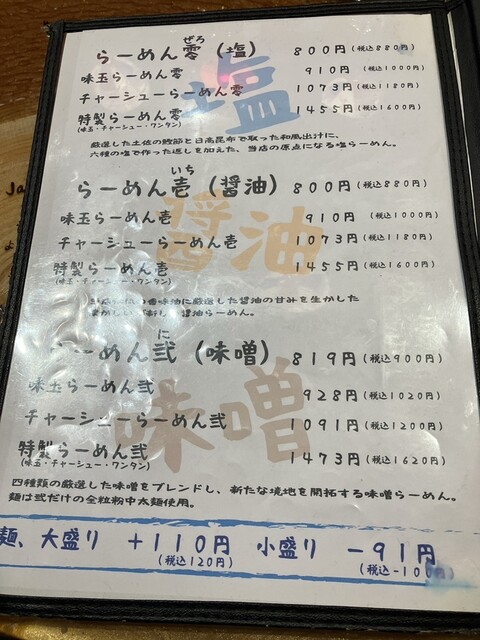 ぜろ
らーめん零（塩） 800円（税込880円）
味玉らーめん零 910円（税込1000円）
チャーシューらーめん零 1073円（税込1180円）
特製らーめん零 1455円（税込1600円）
（味玉・チャーシュー・ワンタン）
塩
厳選した土佐の鰹節と日高昆布で取った和風出汁に、
六種の塩で作った返しを加えた、当店の原点になる塩らーめん。
いち
らーめん壱（醤油） 800円（税込880円）
味玉らーめん壱 910円（税込1000円）
チャーシューらーめん壱 1073円（税込1180円）
特製らーめん壱 1455円（税込1600円）
（味玉・チャーシュー・ワンタン）
醤油
香味油に厳選した醤油の甘みを生かした
醤油らーめん。
に
らーめん弐（味噌） 819円（税込900円）
味玉らーめん弐 928円（税込1020円）
チャーシューらーめん弐 1091円（税込1200円）
特製らーめん弐 1473円（税込1620円）
（味玉・チャーシュー・ワンタン）
味噌
四種類の厳選した味噌をブレンドし、新たな境地を開拓する味噌らーめん。
麺は弐だけの全粒粉中太麺使用。
麺、大盛り ＋110円 小盛り －91円
（税込120円） （税込－100円）